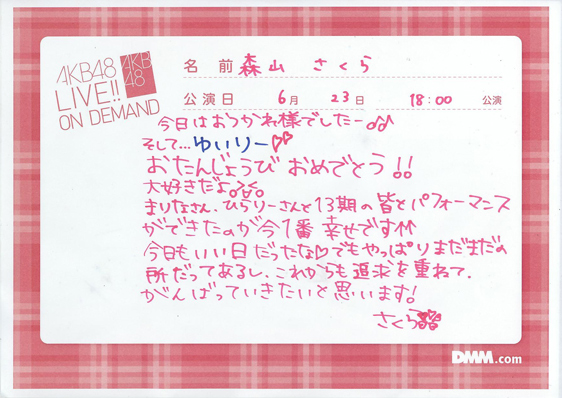 AKB48
LIVE!!
ON DEMAND
AKB
48
名前 森山 さくら
公演日 6月 23日 18:00 公演
今日はおつかれ様でしたー♪♪
そして…ゆいりー♡♡
おたんじょうび おめでとう!!
大好きだよ
まりなさん、ひらりーさんと13期の皆とパフォーマンス
ができたのが今1番 幸せです↑↑
今日もいい日だったな♡でもやっぱりまだまだの
所だってあるし、これからも追求を重ねて、
がんばっていきたいと思います!
さくら
DMM.com